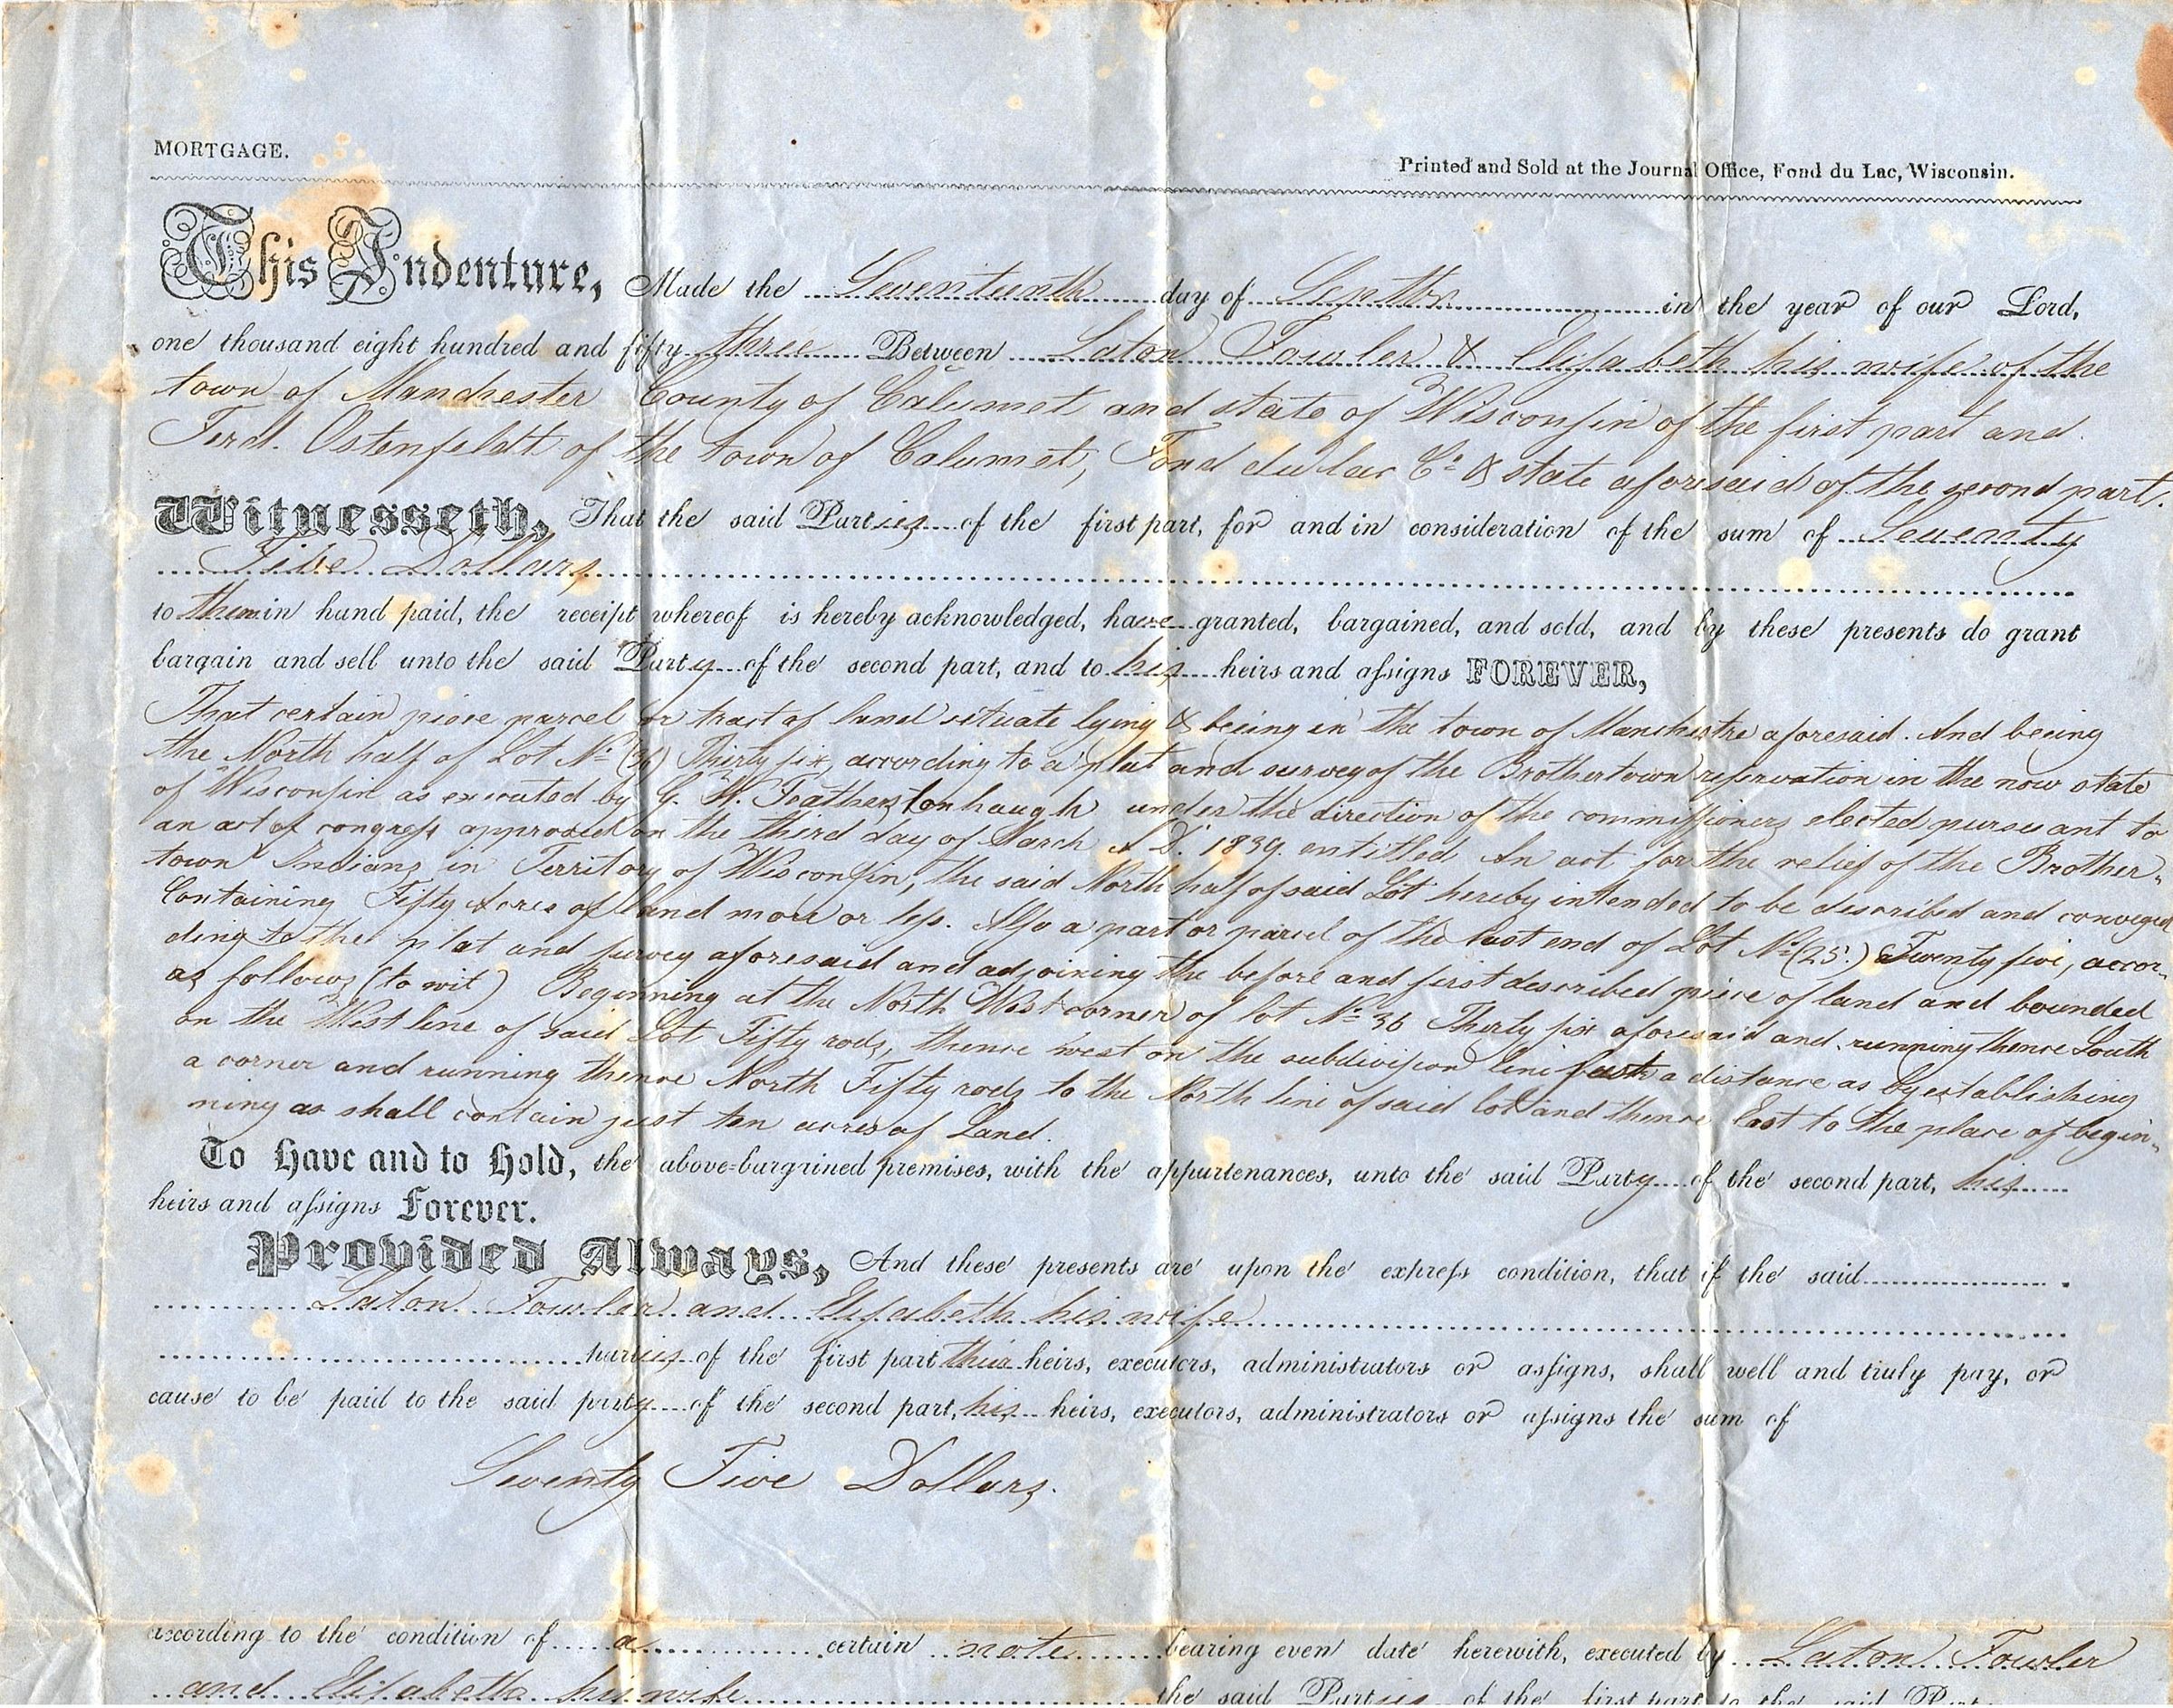 MORTGAGE.
Printed and Sold at the Journal Office, Fond du Lac, Wisconsin.
This Indenture, Made the Seventeenth day of Septbr in the year of our Lord,
one thousand eight hundred and fifty three Between Laton Fowler & Elizabeth his wife of the
town of Manchester County of Calumet and state of Wisconsin of the first part and
Ferd. Ostenfeldt of the town of Calumet, Fond du lac Co & state aforesaid of the second part.
Witnesseth, That the said Parties of the first part, for and in consideration of the sum of Seventy
Five Dollars
to them in hand paid, the receipt whereof is hereby acknowledged, have granted, bargained, and sold, and by these presents do grant
bargain and sell unto the said Party of the second part, and to his heirs and assigns FOREVER,
That certain piece parcel or tract of land situate lying & beeing in the town of Manchestre aforesaid. And beeing
the North half of Lot No (36) Thirty six, according to a plat and survey of the Brothertown reservation in the now state
of Wisconsin as executed by G. W. Featherstonhaugh under the direction of the commissioners elected pursuant to
an act of congress approved on the third day of March A D. 1839. entitled An act for the relief of the Brother-
town Indians in Territory of Wisconsin, the said North half of said Lot hereby intended to be described and conveyed
Containing Fifty Acres of land more or less. Also a part or parcel of the East end of Lot No (25.) Twenty five, accor-
ding to the plat and survey aforesaid and adjoining the before and first described piece of land and bounded
as follows (to wit) Beginning at the North West corner of lot No 36 Thirty six aforesaid and running thence South
on the West line of said Lot Fifty rods, thence west on the subdivision line such a distance as by establishing
a corner and running thence North Fifty rods to the North line of said lot and thence East to the place of begin-
ning as shall contain just ten acres of Land.
To Have and to Hold, the above-bargained premises, with the appurtenances, unto the said Party of the second part, his
heirs and assigns Forever.
Provided Always, And these presents are upon the express condition, that if the said
Laton Fowler and Elizabeth his wife
parties of the first part their heirs, executors, administrators or assigns, shall well and truly pay, or
cause to be paid to the said party of the second part, his heirs, executors, administrators or assigns the sum of
Seventy Five Dollars.
according to the condition of a certain note bearing even date herewith, executed by Laton Fowler
and Elizabeth his wife the said Parties of the first part to the said Part